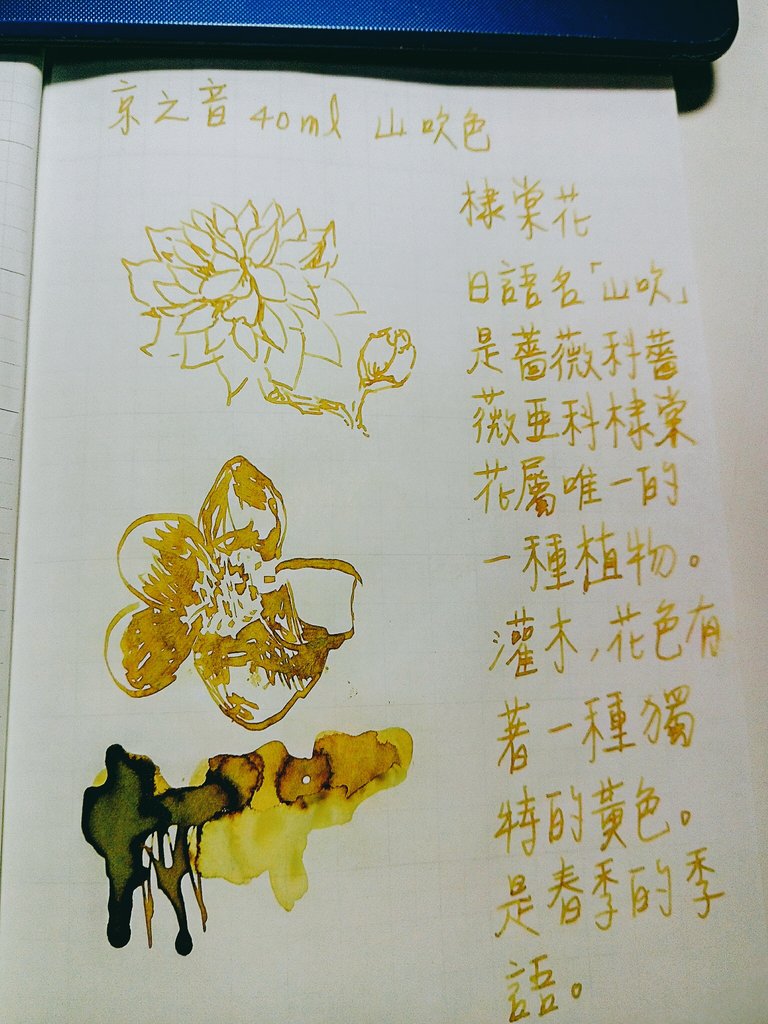 京之音 40ml 山吹色
棣棠花
日語名「山吹」
是薔薇科薔
薇亞科棣棠
花屬唯一的
一種植物。
灌木,花色有
著一種獨
特的黃色。
是春季的季
語。